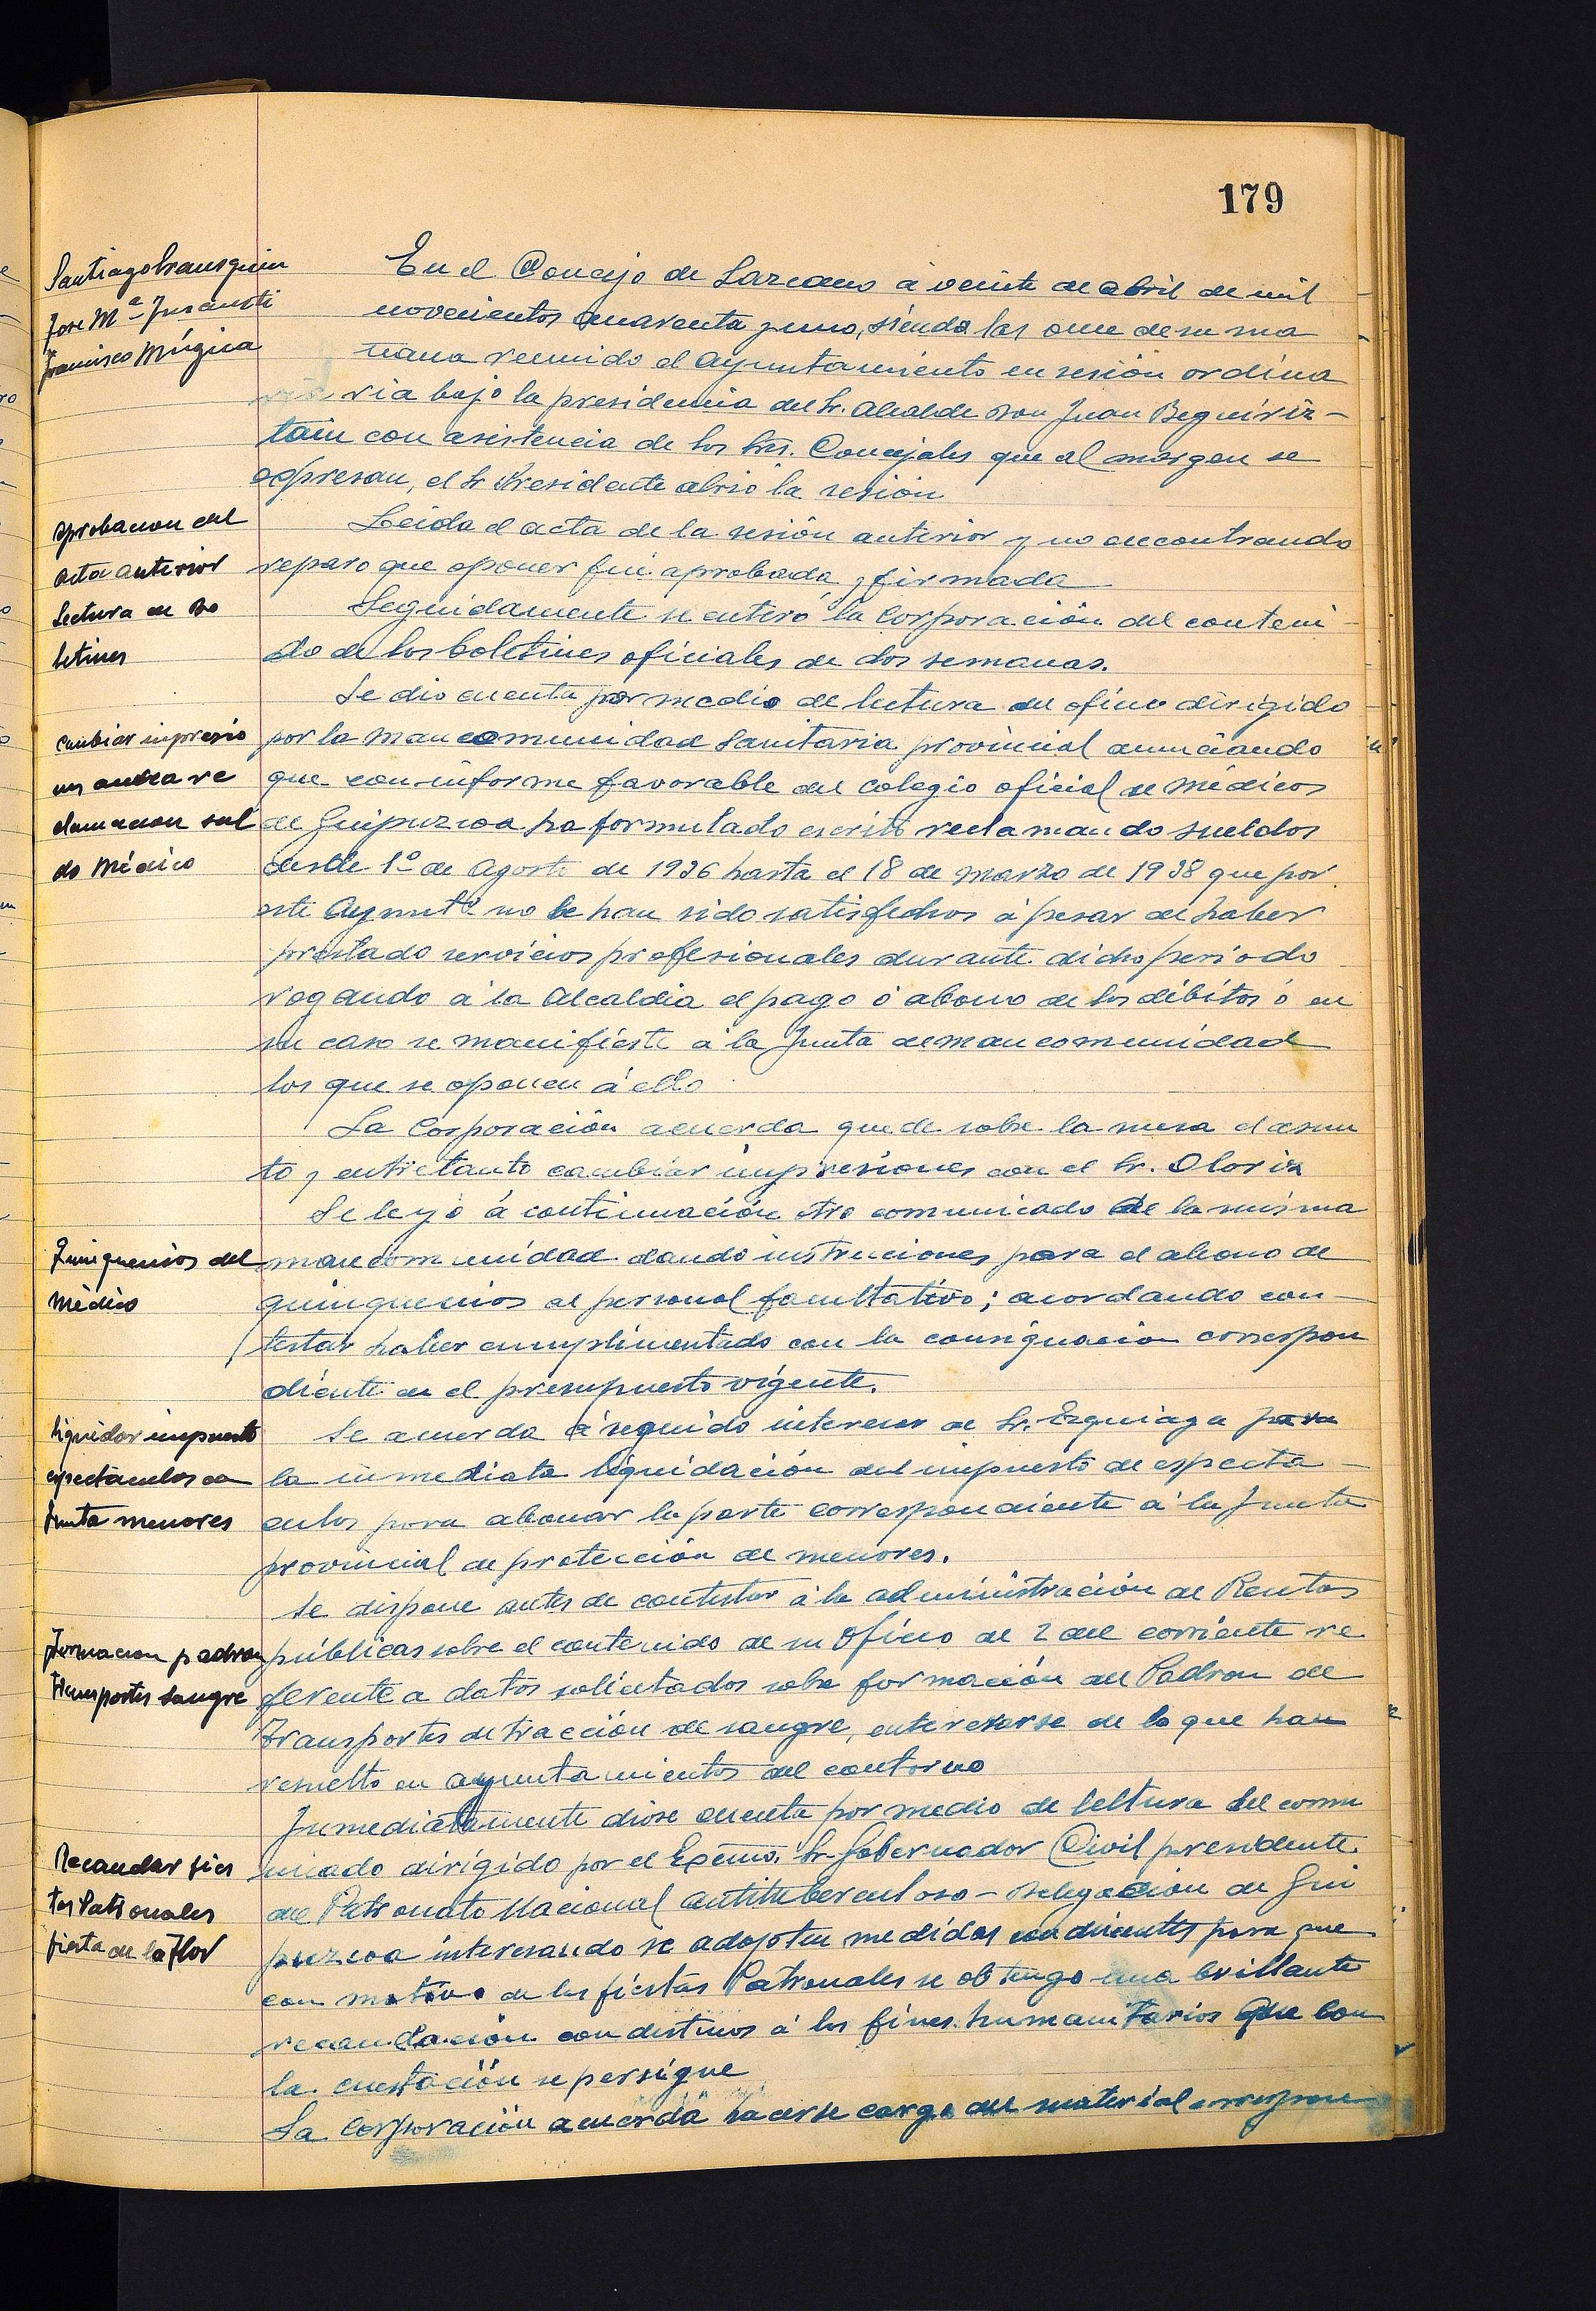 179
Santiago Irausquin
Jose Mª Insausti
Francisco Múgica
En el Concejo de Lazcano á veinte de abril de mil
novecientos cuarenta y uno, siendo las once de su ma
ñana reunido el Ayuntamiento en sesión ordina
ria bajo la presidencia del Sr. Alcalde Don Juan Beguiriz-
tain con asistencia de los Srs. Concejales que al margen se
expresan, el Sr Presidente abrió la sesión
Aprobacion del
acta anterior
Leida el acta de la sesión anterior y no encontrando
reparo que oponer fué aprobada y firmada
Lectura de Bo
letines
Seguidamente se enteró la Corporación del conteni
do de los boletines oficiales de dos semanas.
Cambiar impresio
nes ante a re
clamacion suel
do Médico
Se dio cuenta por medio de lectura del oficio dirigido
por la Mancomunidad Sanitaria provincial anunciando
que con informe favorable del Colegio oficial de Médicos
de Guipuzcoa ha formulado escrito reclamando sueldos
desde 1º de Agosto de 1936 hasta el 18 de Marzo de 1938 que por
este Ayuntº no le han sido satisfechos á pesar de haber
prestado servicios profesionales durante dicho periodo
rogando á la Alcaldia el pago ó abono de los débitos ó en
su caso se manifieste á la Junta de mancomunidad
los que se oponen á ello
La Corporación acuerda quede sobre la mesa el asun
to y entretanto cambiar impresiones con el Sr. Oloriz
Quinquenios del
Médico
Se leyó á continuación otro comunicado de la misma
mancomunidad dando instruciones para el abono de
quinquenios al personal facultativo; acordando con-
testar haber cumplimentado con la consignacion correspon
diente en el presupuesto vigente.
Liquidar impuesto
espectaculos a
Junta menores
Se acuerda á seguido interesar al Sr. Ezquiaga para
la inmediata liquidación del impuesto de espectá-
culos para abonar la parte correspondiente á la Junta
provincial de protección de menores.
Formacion padron
transportes Sangre
Se dispone antes de contestar á la administración de Rentas
públicas sobre el contenido de su Oficio de 2 del corriente re
ferente a datos solicitados sobre formación del Padron de
transportes de tracción de sangre, enterarse de lo que han
resuelto en ayuntamientos del contorno
Recaudar fies
tas Patronales
fiesta de la Flor
Inmediatamente diose cuenta por medio de lectura del comu
nicado dirigido por el Excmo. Sr. Gobernador Civil presidente
del Patronato Nacional antituberculoso - Delegación de Gui
puzcoa interesando se adopten medidas conducentes para que
con motivo de las fiestas Patronales se obtenga una brillante
recaudación con destinos á los fines humanitarios que con
la cuestación se persigue
La Corporación acuerda hacerse cargo del material correspon